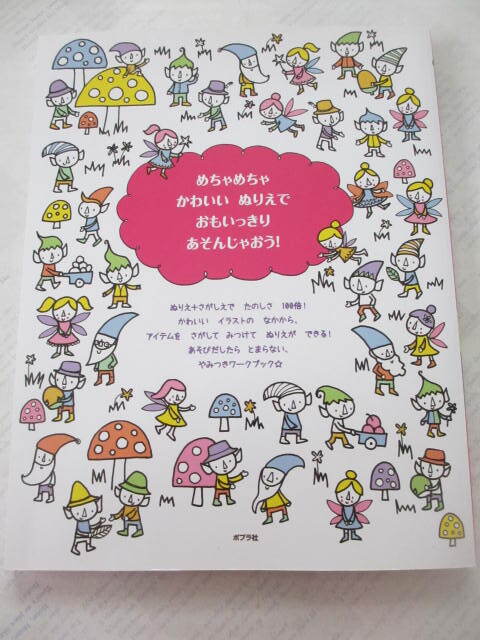 めちゃめちゃ
かわいい ぬりえで
おもいっきり
あそんじゃおう!
ぬりえ+さがしえで たのしさ 100倍!
かわいい イラストの なかから、
アイテムを さがして みつけて ぬりえが できる!
あそびだしたら とまらない、
やみつきワークブック☆
ポプラ社